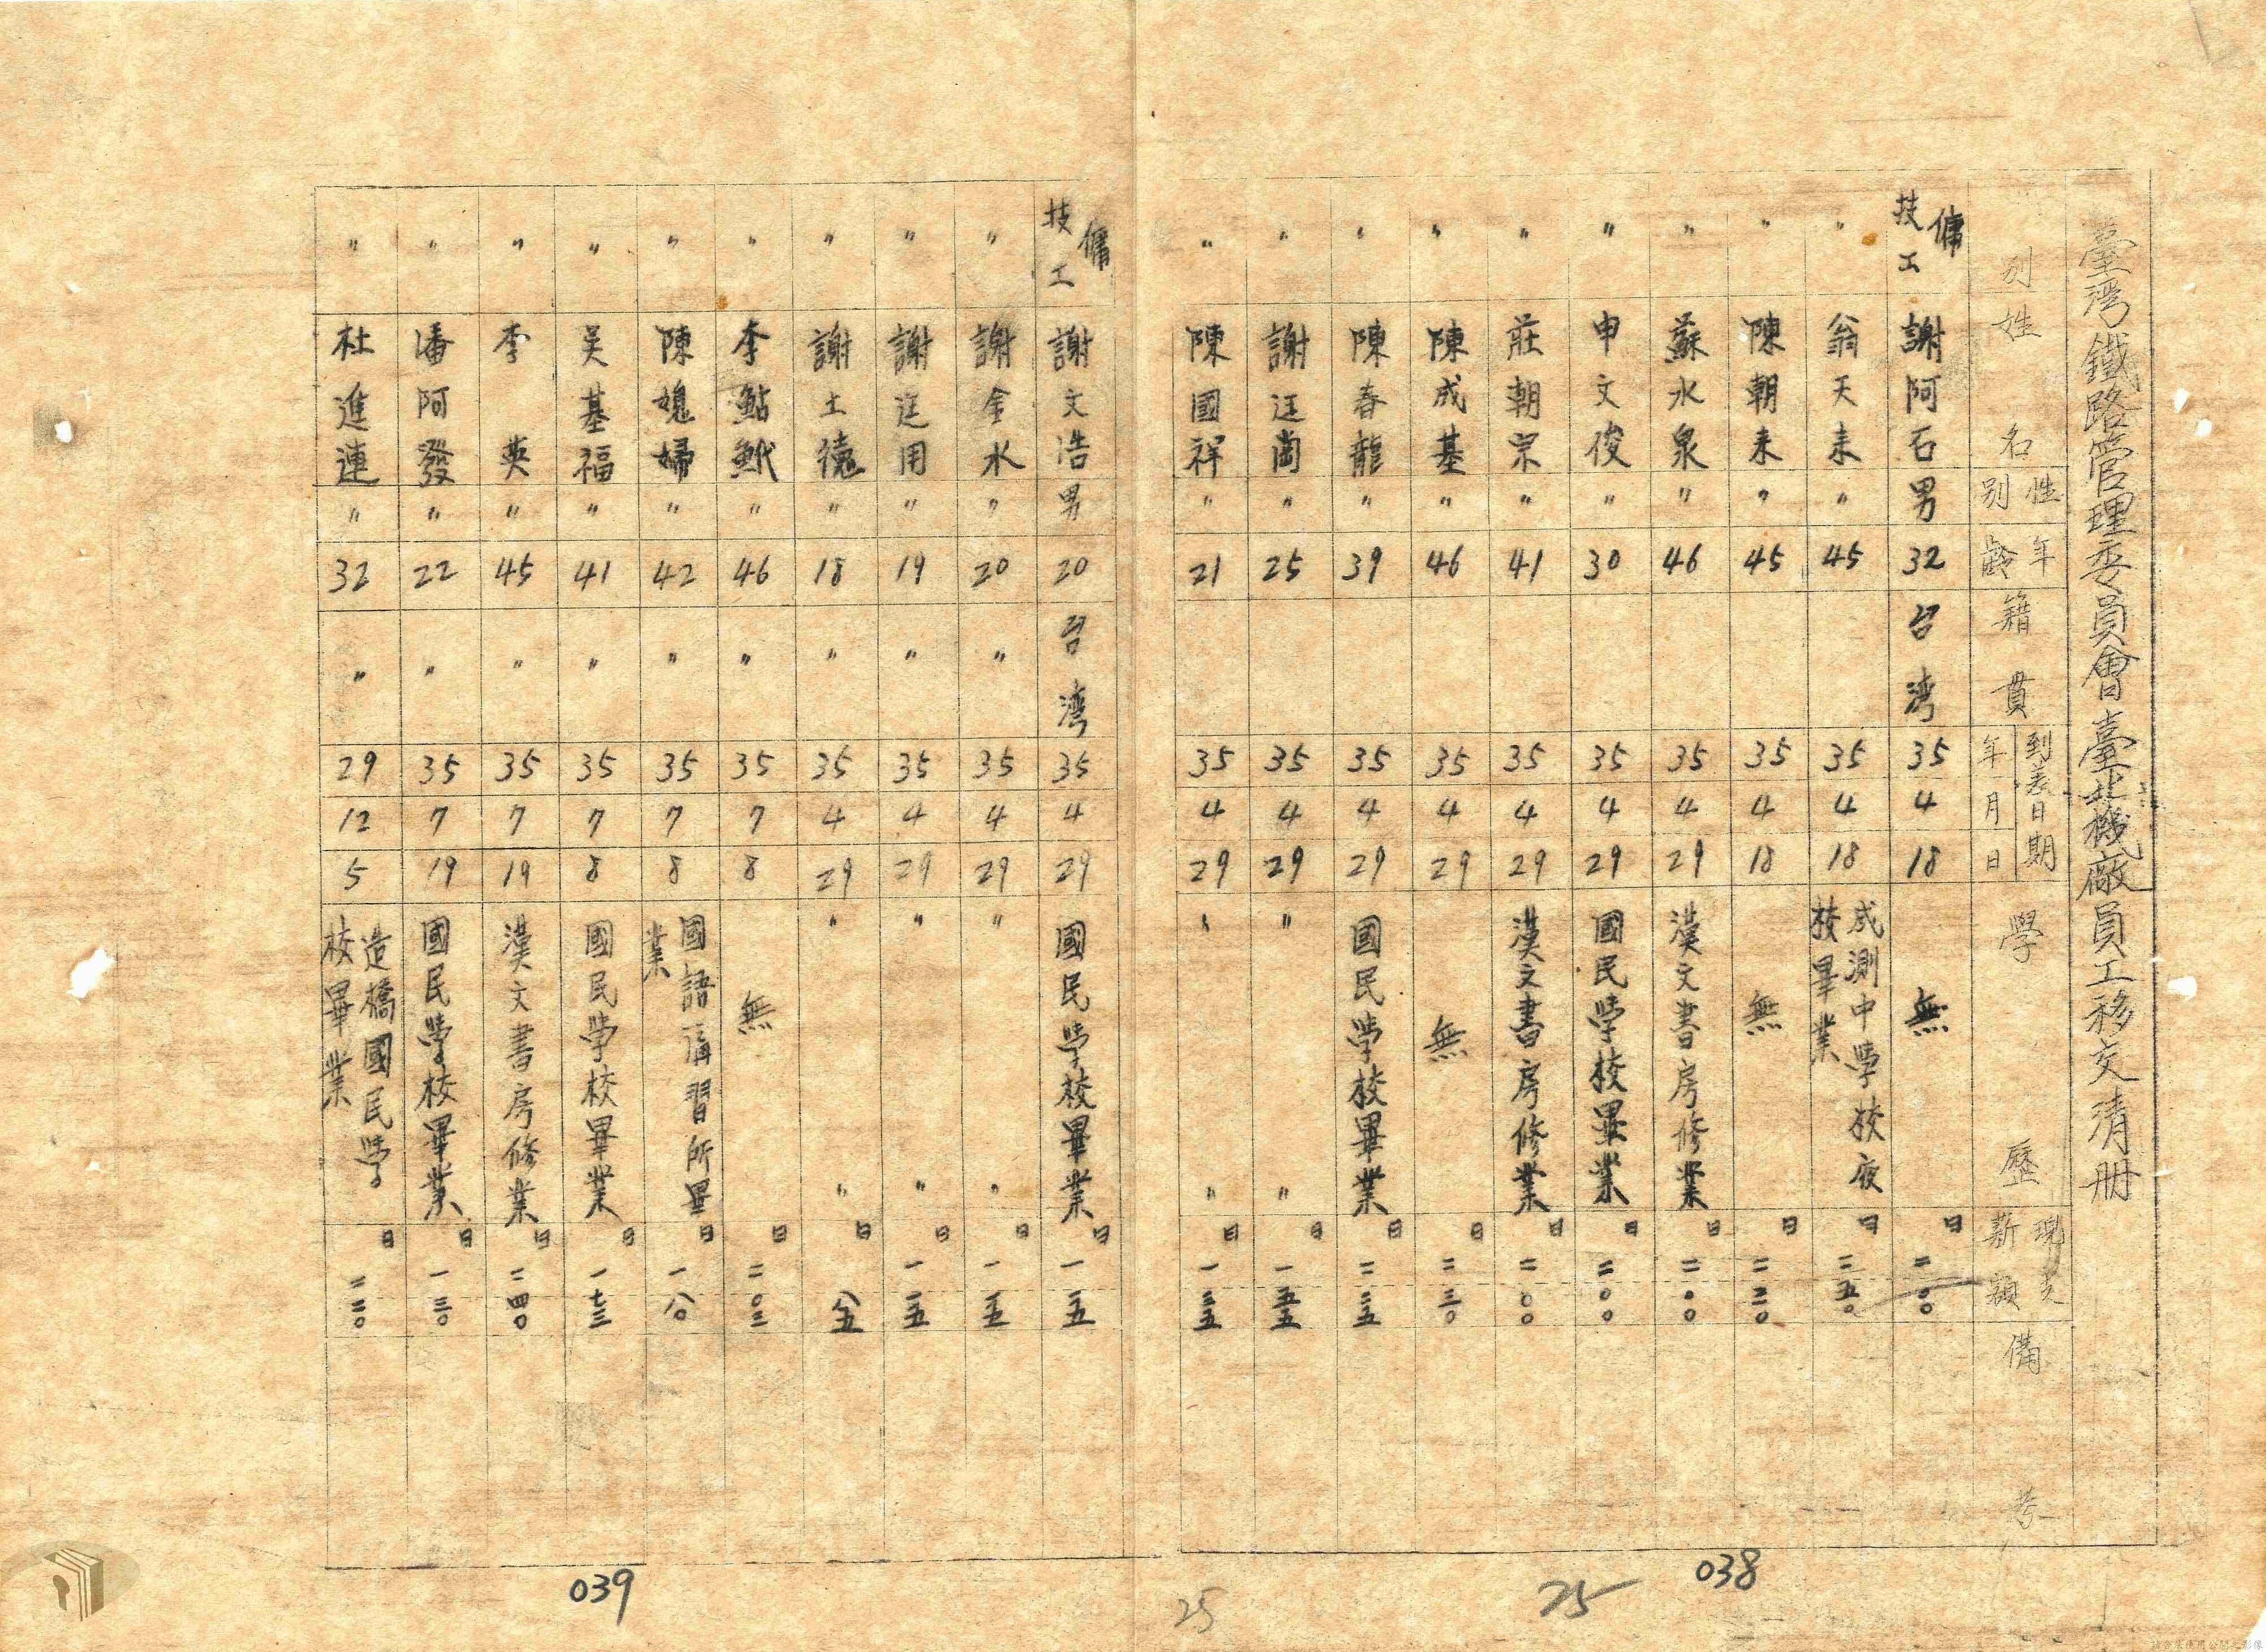 臺灣鐵路管理委員會臺北機廠員工移交清冊
別 姓名 性別 年齡 籍貫 到差日期 年 月 日 學歷 現支薪額 備考
傭技工 謝阿石 男 32 台灣 35 4 18 無 日 二〇〇
〃 翁天来 〃 45 35 4 18 成測中學校夜校畢業 日 二五〇
〃 陳朝来 〃 45 35 4 18 無 日 二三〇
〃 蘇水泉 〃 46 35 4 29 漢文書房修業 日 二〇〇
〃 申文俊 〃 30 35 4 29 國民学校畢業 日 二〇〇
〃 莊朝宗 〃 41 35 4 29 漢文書房修業 日 二〇〇
〃 陳成基 〃 46 35 4 29 無 日 二三〇
〃 陳春龍 〃 39 35 4 29 國民学校畢業 日 二三五
〃 謝迋崗 〃 25 35 4 29 〃 〃 日 一五五
〃 陳國祥 〃 21 35 4 29 〃 〃 日 一三五
傭技工 謝文浩 男 20 台灣 35 4 29 國民学校畢業 日 一一五
〃 謝金水 〃 20 〃 35 4 29 〃 〃 日 一一五
〃 謝迋用 〃 19 〃 35 4 29 〃 〃 日 一一五
〃 謝土德 〃 18 〃 35 4 29 〃 〃 日 八五
〃 李鮎鮘 〃 46 〃 35 7 8 無 日 二〇三
〃 陳媳婦 〃 42 〃 35 7 8 國語講習所畢業 日 一八〇
〃 吴基福 〃 41 〃 35 7 8 國民学校畢業 日 一七三
〃 李英 〃 45 〃 35 7 19 漢文書房修業 日 二四〇
〃 潘阿發 〃 22 〃 35 7 19 國民學校畢業 日 一三〇
〃 杜進連 〃 32 〃 29 12 5 造橋國民学校畢業 日 二二〇
038
25
25
039